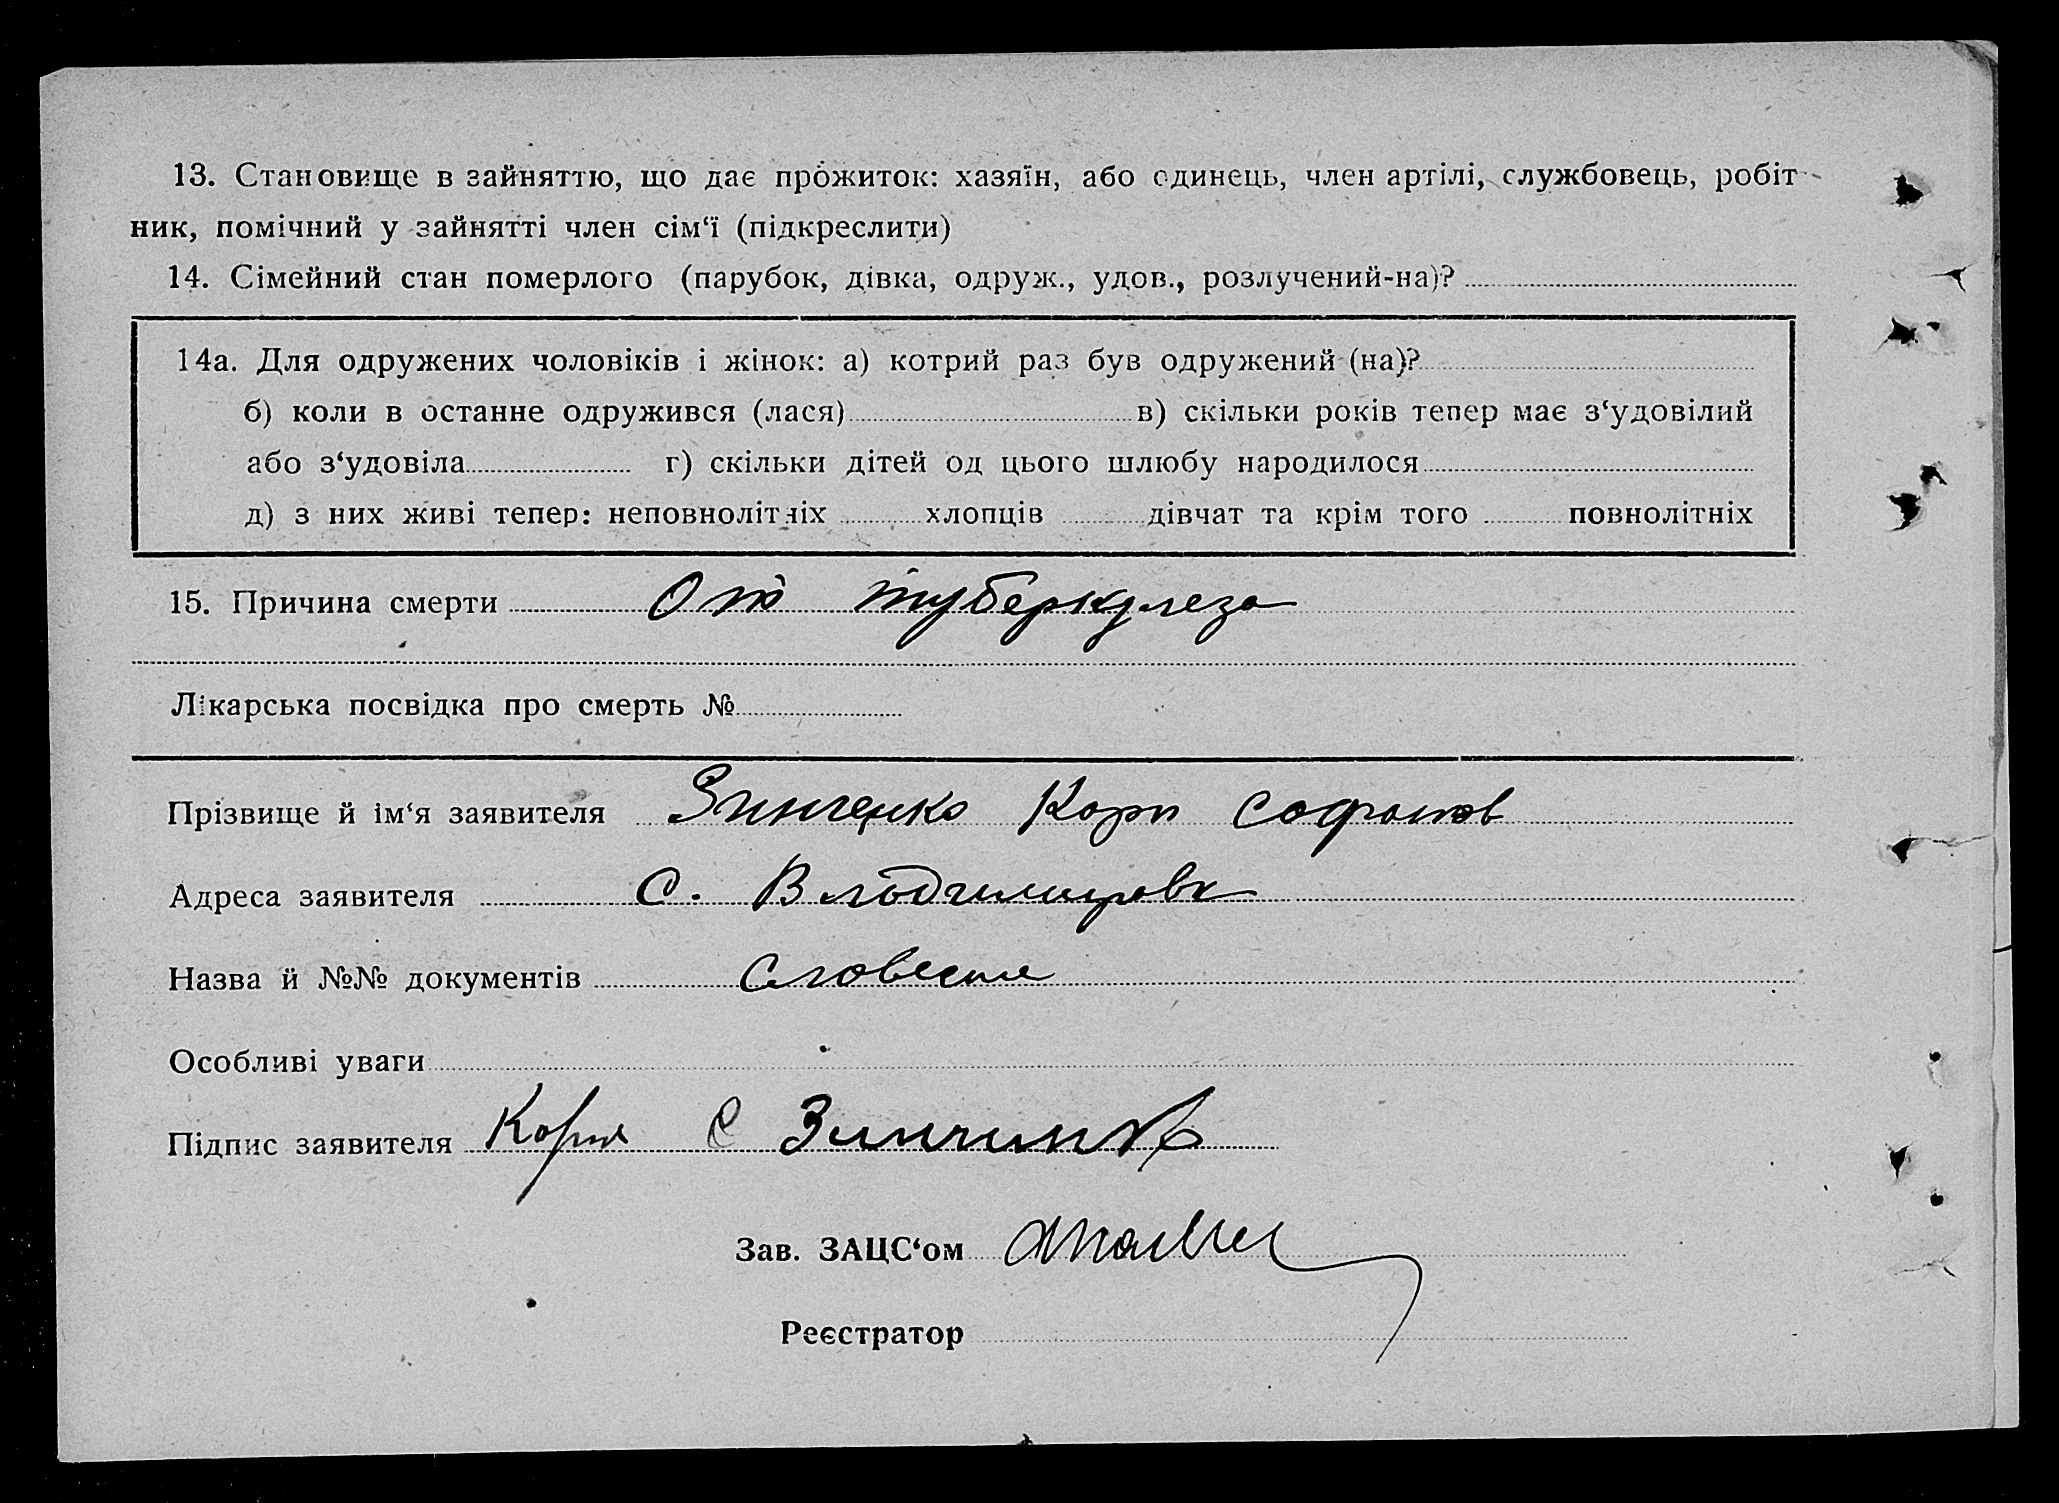 13. Становище в зайняттю, що дає прожиток: хазяїн, або одинець, член артілі, службовець, робіт-
ник, помічний у зайнятті член сім‘ї (підкреслити)
14. Сімейний стан померлого (парубок, дівка, одруж., удов., розлучений-на)?
14а. Для одружених чоловіків і жінок: а) котрий раз був одружений (на)?
б) коли в останне одружився (лася) в) скільки років тепер має з‘удовілий
або з‘удовіла г) скільки дітей од цього шлюбу народилося
д) з них живі тепер: неповнолітніх хлопців дівчат та крім того повнолітніх
15. Причина смерти От туберкулеза
Лікарська посвідка про смерть №
Прізвище й ім‘я заявителя Зинченко Карп Софронов
Адреса заявителя с. Владимировк
Назва й №№ документів словесне
Особливі уваги
Підпис заявителя Карп С Зинчинко
Зав. ЗАЦС‘ом
Реєстратор